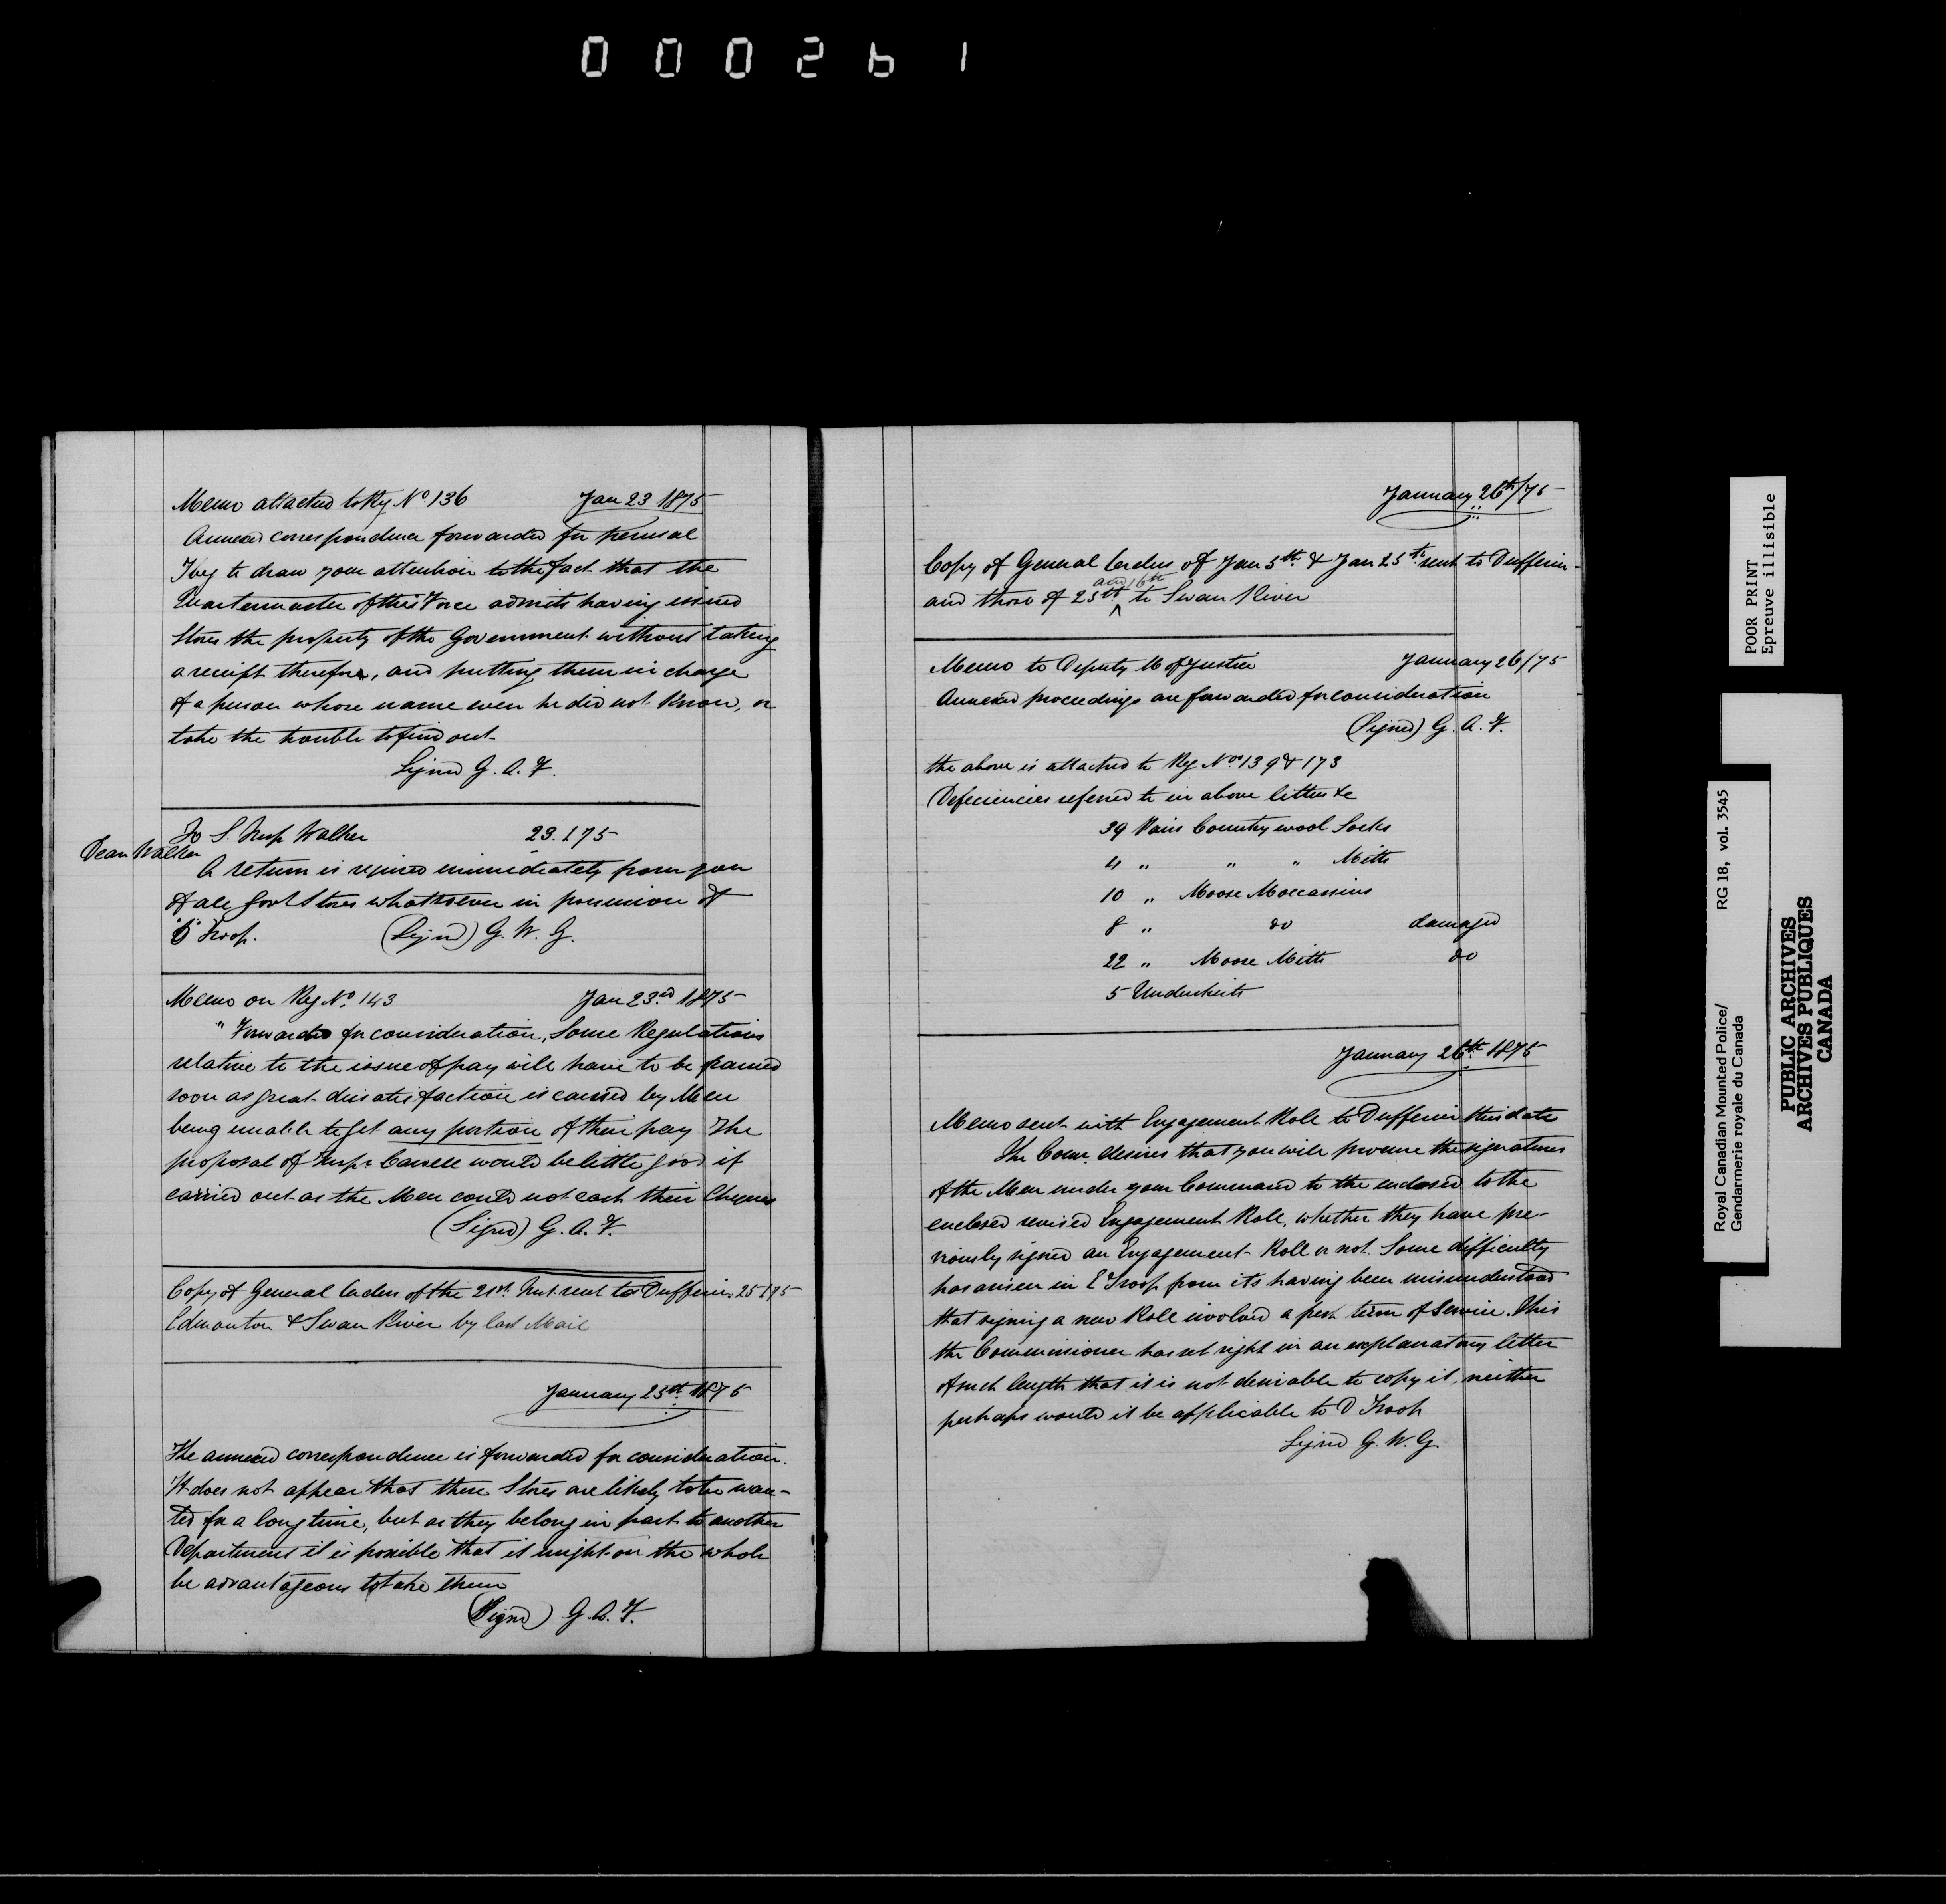 000261
Memo attached to Reg No. 136 Jan 23 1875
Annexed correspondence forwarded for perusal
I beg to draw your attention to the fact that the
Quartermaster of this Force admits having issued
Stores the property of the Government without taking
a receipt therefor, and putting them in charge
of a person whose name even he did not know, or
take the trouble to find out
Signd G. A. F.
To S. Insp Walker 23.1 75
Dear Walker
A return is required immediately from you
of all Govt Stores whatsoever in possession of
"D" Troop. (Signd) G. W. G.
Memo on Reg No. 143 Jan 23rd 1875
" Forwarded for consideration, Some Regulations
relative to the issue of pay will have to be framed
soon as great dissatisfaction is caused by Men
being unable to get any portion of their pay. The
proposal of Inspr Carvell would be little good if
carried out as the Men could not cash their Cheques
(Signd) G. A. F.
Copy of General Orders of the 21st Inst. sent to Dufferin 25 1 75
Edmonton & Swan River by last Mail
January 25th 1875
The annexed correspondence is forwarded for consideration.
It does not appear that these Stores are likely to be wan-
ted for a long time, but as they belong in part to another
Department it is possible that it might on the whole
be advantageous to take them
(Signd) G. A. F.
January 26th/75
Copy of General Orders of Jan 5th & Jan 25th sent to Dufferin
and 16th
and those of 25th ^ to Swan River
Memo to Deputy M of Justice January 26/75
Annexed proceedings are forwarded for consideration
(Signed) G. A. F.
the above is attached to Reg Nos 139 & 173
Defeciencies referred to in above letters &c
39 Pairs Country wool Socks
4 " " " Mitts
10 " Moose Moccassins
8 " do damaged
22 " Moose Mitts do
5 Undershirts
January 26th 1875
Memo sent with Engagement Roll to Dufferin this date
The Comr. desires that you will procure the signatures
of the Men under your Command to the enclosed to the
enclosed revised Engagement Roll, whether they have pre-
viously signed an Engagement Roll or not. Some difficulty
has arisen in E Troop from its having been misunderstood
that signing a new Roll involved a fresh term of Service. This
the Commissioner has set right in an explanatory letter
of such length that it is not desirable to copy it, neither
perhaps would it be applicable to D Troop
Signd G. W. G.
POOR PRINT
Epreuve illisible
Royal Canadian Mounted Police/ RG 18, vol. 3545
Gendarmerie royale du Canada
PUBLIC ARCHIVES
ARCHIVES PUBLIQUES
CANADA